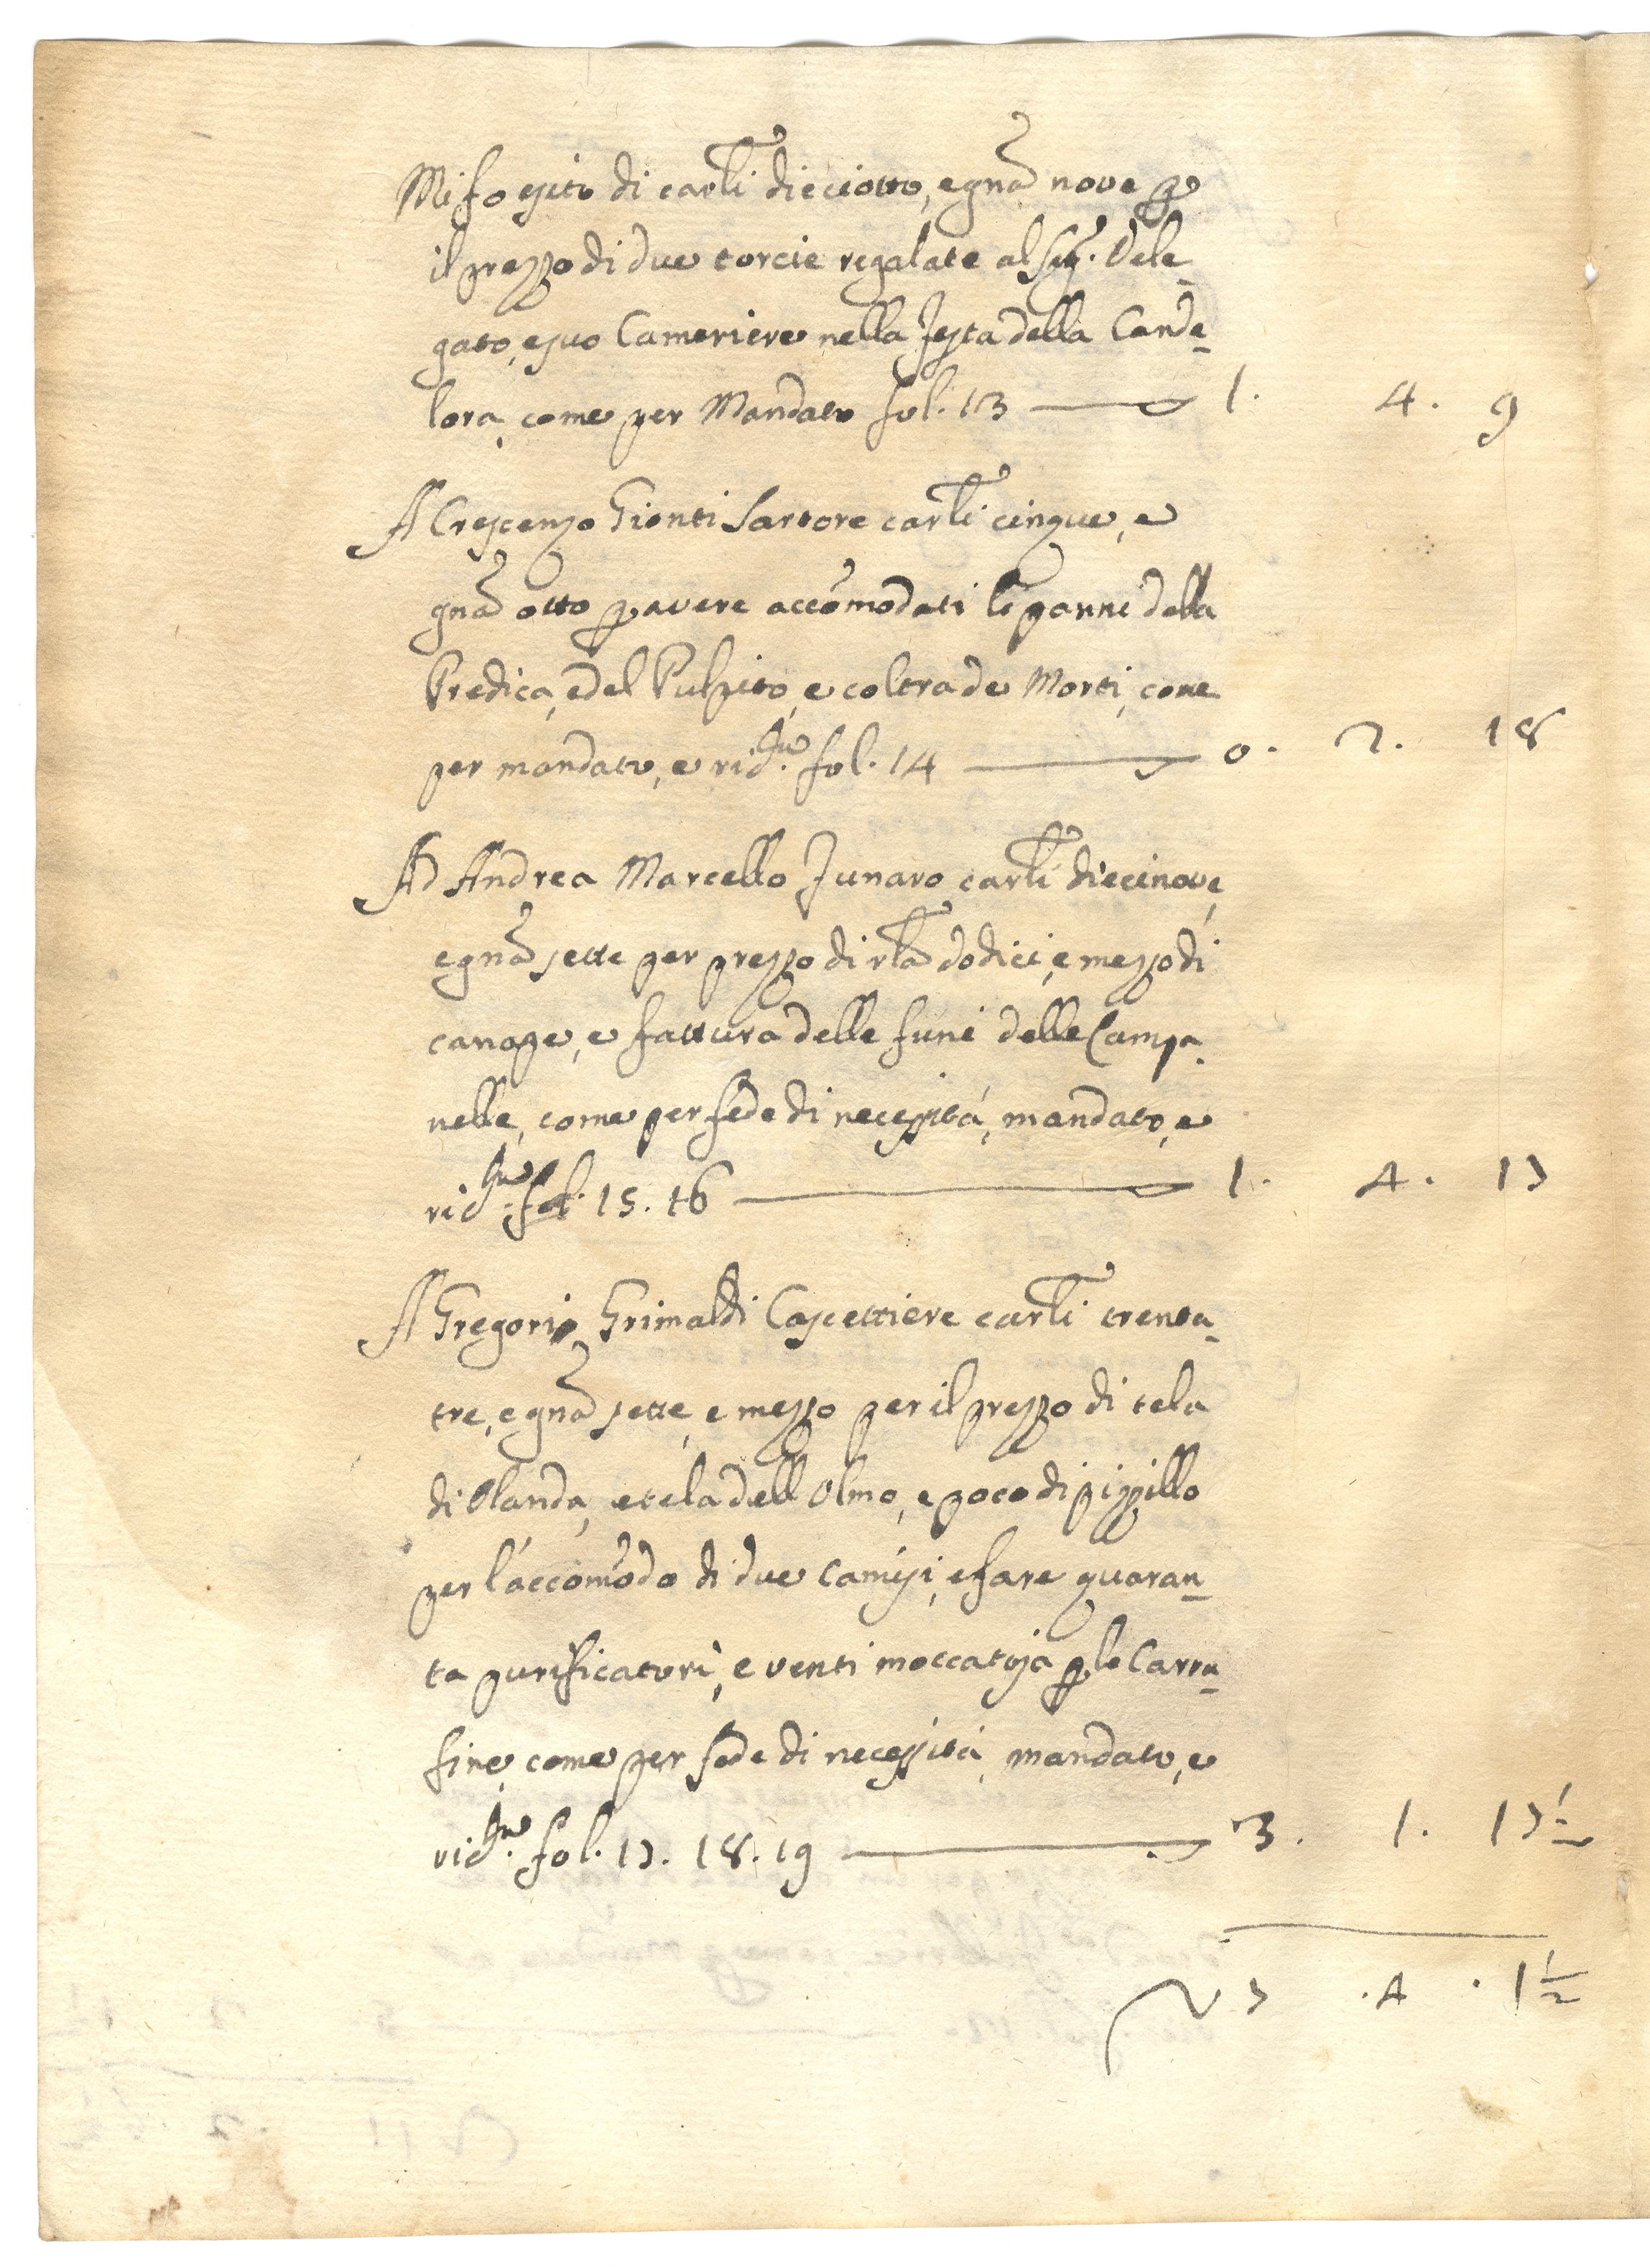 Mi fo esito di carli dieciotto, e gna nove p
il prezzo di due torcie regalate al Sig. Dele-
gato, e suo Cameriere nella Festa della Cande-
lora, come per Mandato fol. 13 — 1. 4. 9
A Crescenzo Gionti Sartore carli cinque, e
gna otto p avere accomodati li panni della
Predica, e del Pulpito, e coltra de Morti, come
per mandato, e rich.ta fol. 14 — 0. 2. 18
Ad Andrea Marcello Funaro carli diecinove,
e gna sette per prezzo di rla dodici, e mezzo di
canape, e fattura delle funi delle Campa-
nelle, come per fede di necessità, mandato, e
fol. 15. 16 — 1. 4. 17
A Gregorio Grimaldi Cascettiere carli trenta-
tre, e gna sette, e mezzo per il prezzo di tela
di Olanda, e tela dell Olmo, e poco di pizzillo
per l'accomodo di due Camisi, e fare quaran-
ta purificatori, e venti moccatoja p le Carra-
fine, come per fede di necessità, mandato, e
fol. 17. 18. 19 — 3. 1. 17½
7 . 4 . 1½